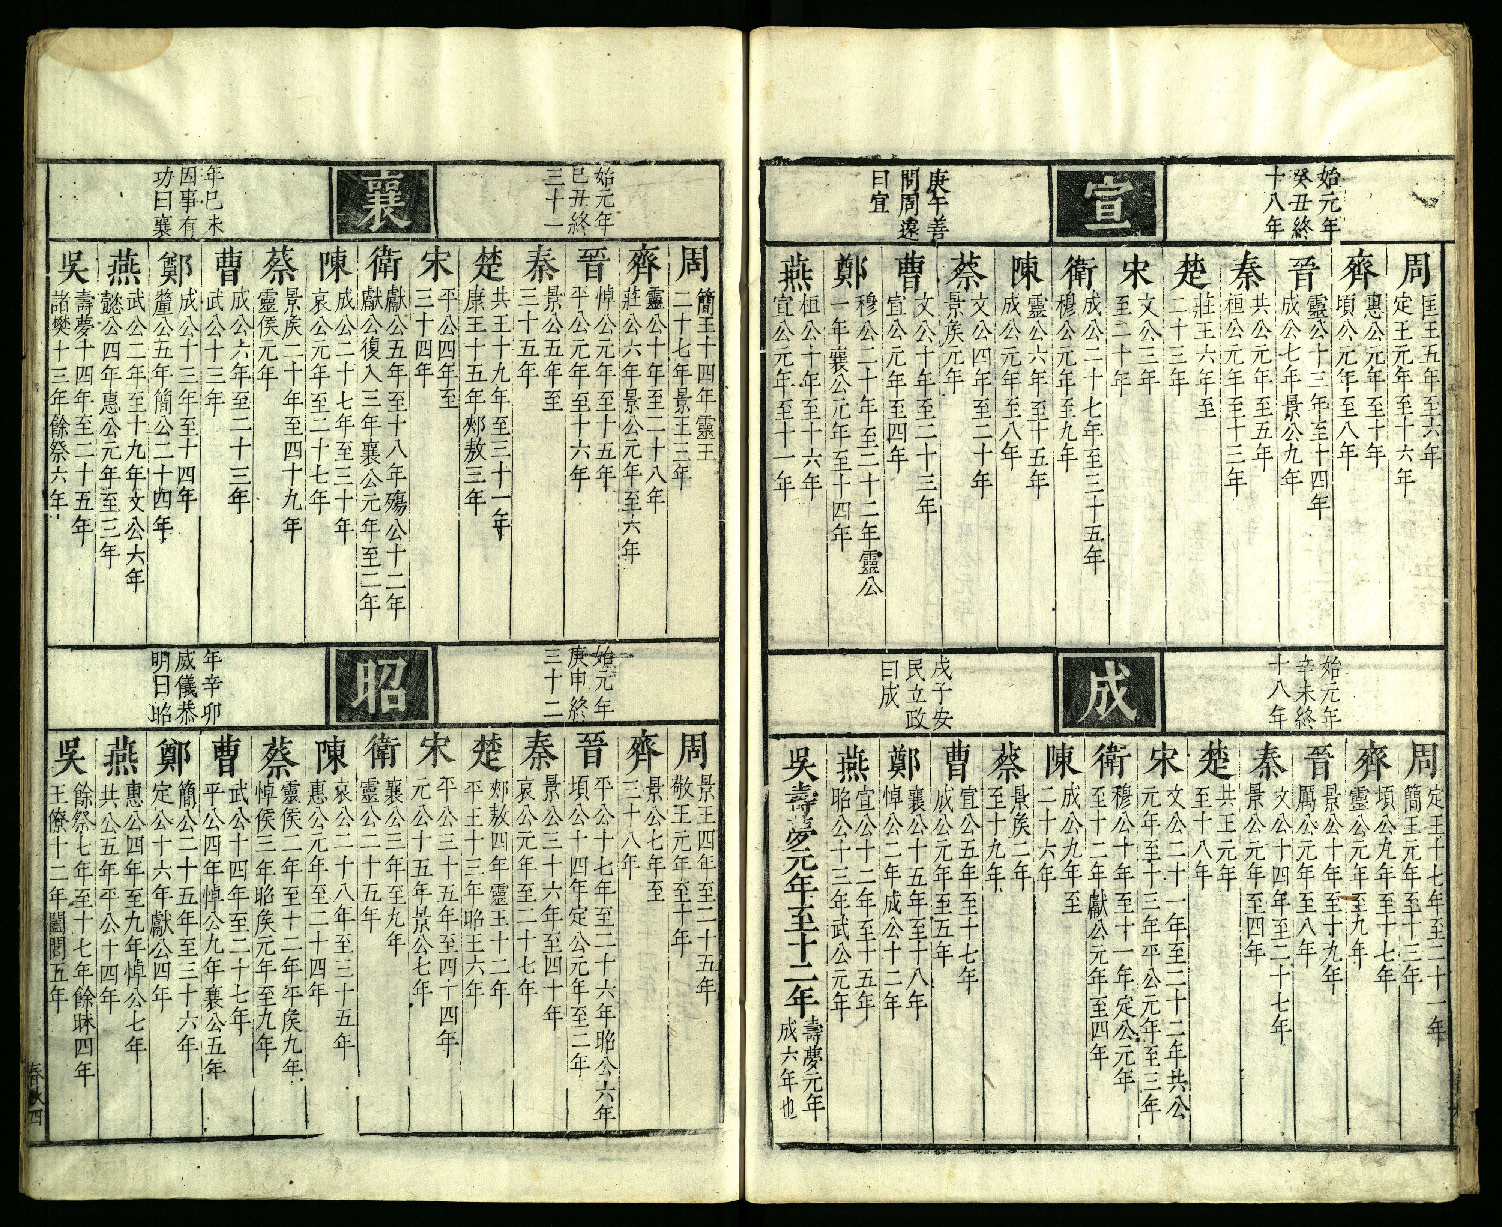 宣
始元年
癸丑終
十八年
庚午善
問周達
曰宣
周
匡王五年至六年
定王元年至十六年
齊
惠公元年至十年
頃公元年至八年
晉
靈公十三年至十四年
成公七年景公九年
秦
共公元年至五年
桓公元年至十二年
楚
莊王六年至
二十三年
宋
文公三年
至二十年
衛
成公二十七年至三十五年
穆公元年至九年
陳
靈公六年至十五年
成公元年至八年
蔡
文公四年至二十年
景侯元年
曹
文公十年至二十三年
宣公元年至四年
鄭
穆公二十年至二十二年靈公
一年襄公元年至十四年
燕
桓公十年至十六年
宣公元年至十一年
成
始元年
辛未終
十八年
戊子安
民立政
曰成
周
定王十七年至二十一年
簡王元年至十三年
齊
頃公九年至十七年
靈公元年至九年
晉
景公十年至十九年
厲公元年至八年
秦
桓公十四年至二十七年
景公元年至四年
楚
共王元年
至十八年
宋
文公二十一年至二十二年共公
元年至十三年平公元年至三年
衛
穆公十年至十一年定公元年
至十二年獻公元年至四年
陳
成公九年至
二十六年
蔡
景侯二年
至十九年
曹
宣公五年至十七年
成公元年至五年
鄭
襄公十五年至十八年
悼公二年成公十二年
燕
宣公十二年至十五年
昭公十三年武公元年
吳
壽夢元年至十二年
壽夢元年
成六年也
襄
始元年
己丑終
三十一
年己未
因事有
功曰襄
周
簡王十四年靈王
二十七年景王三年
齊
靈公十年至二十八年
莊公六年景公元年至六年
晉
悼公元年至十五年
平公元年至十六年
秦
景公五年至
三十五年
楚
共王十九年至三十一年
康王十五年郟敖三年
宋
平公四年至
三十四年
衛
獻公五年至十八年殤公十二年
獻公復入三年襄公元年至二年
陳
成公二十七年至三十年
哀公元年至二十七年
蔡
景侯二十年至四十九年
靈侯元年
曹
成公六年至二十三年
武公十三年
鄭
成公十三年至十四年
釐公五年簡公二十四年
燕
武公二年至十九年文公六年
懿公四年惠公元年至三年
吳
壽夢十四年至二十五年
諸樊十三年餘祭六年
昭
始元年
庚申終
三十二
年辛卯
威儀恭
明曰昭
周
景王四年至二十五年
敬王元年至十年
齊
景公七年至
三十八年
晉
平公十七年至二十六年昭公六年
頃公十四年定公元年至二年
秦
景公三十六年至四十年
哀公元年至二十七年
楚
郟敖四年靈王十二年
平王十三年昭王六年
宋
平公三十五年至四十四年
元公十五年景公七年
衛
襄公三年至九年
靈公二十五年
陳
哀公二十八年至三十五年
惠公元年至二十四年
蔡
靈侯二年至十二年平侯九年
悼侯三年昭侯元年至九年
曹
武公十四年至二十七年
平公四年悼公九年襄公五年
鄭
簡公二十五年至三十六年
定公十六年獻公四年
燕
惠公四年至九年悼公七年
共公五年平公十四年
吳
餘祭七年至十七年餘眛四年
王僚十二年闔閭五年
春秋四